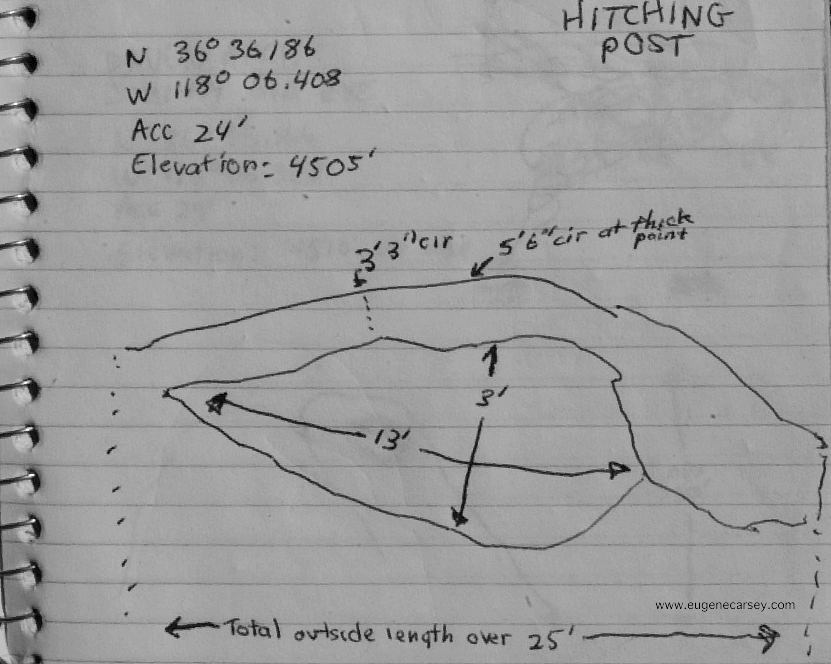 HITCHING
POST
N 36° 36.186
W 118° 06.408
Acc 24'
Elevation: 4505'
3' 3" cir
5' 6" cir at thick
point
3'
13'
www.eugenecarsey.com
Total outside length over 25'